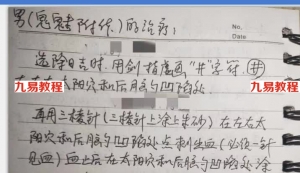 男(鬼鬼附作)的治疗:
No.
Date
选降日去时.用剑指画"井"字符 井
九易教程
九易教程
右太阳穴和后脑勺凹陷处
再用三棱针(三棱针上涂上朱砂)在左右太
阳穴和后脑勺凹陷处点刺出血(必须一针
见血)血止后在太阳穴和后脑勺凹陷处涂